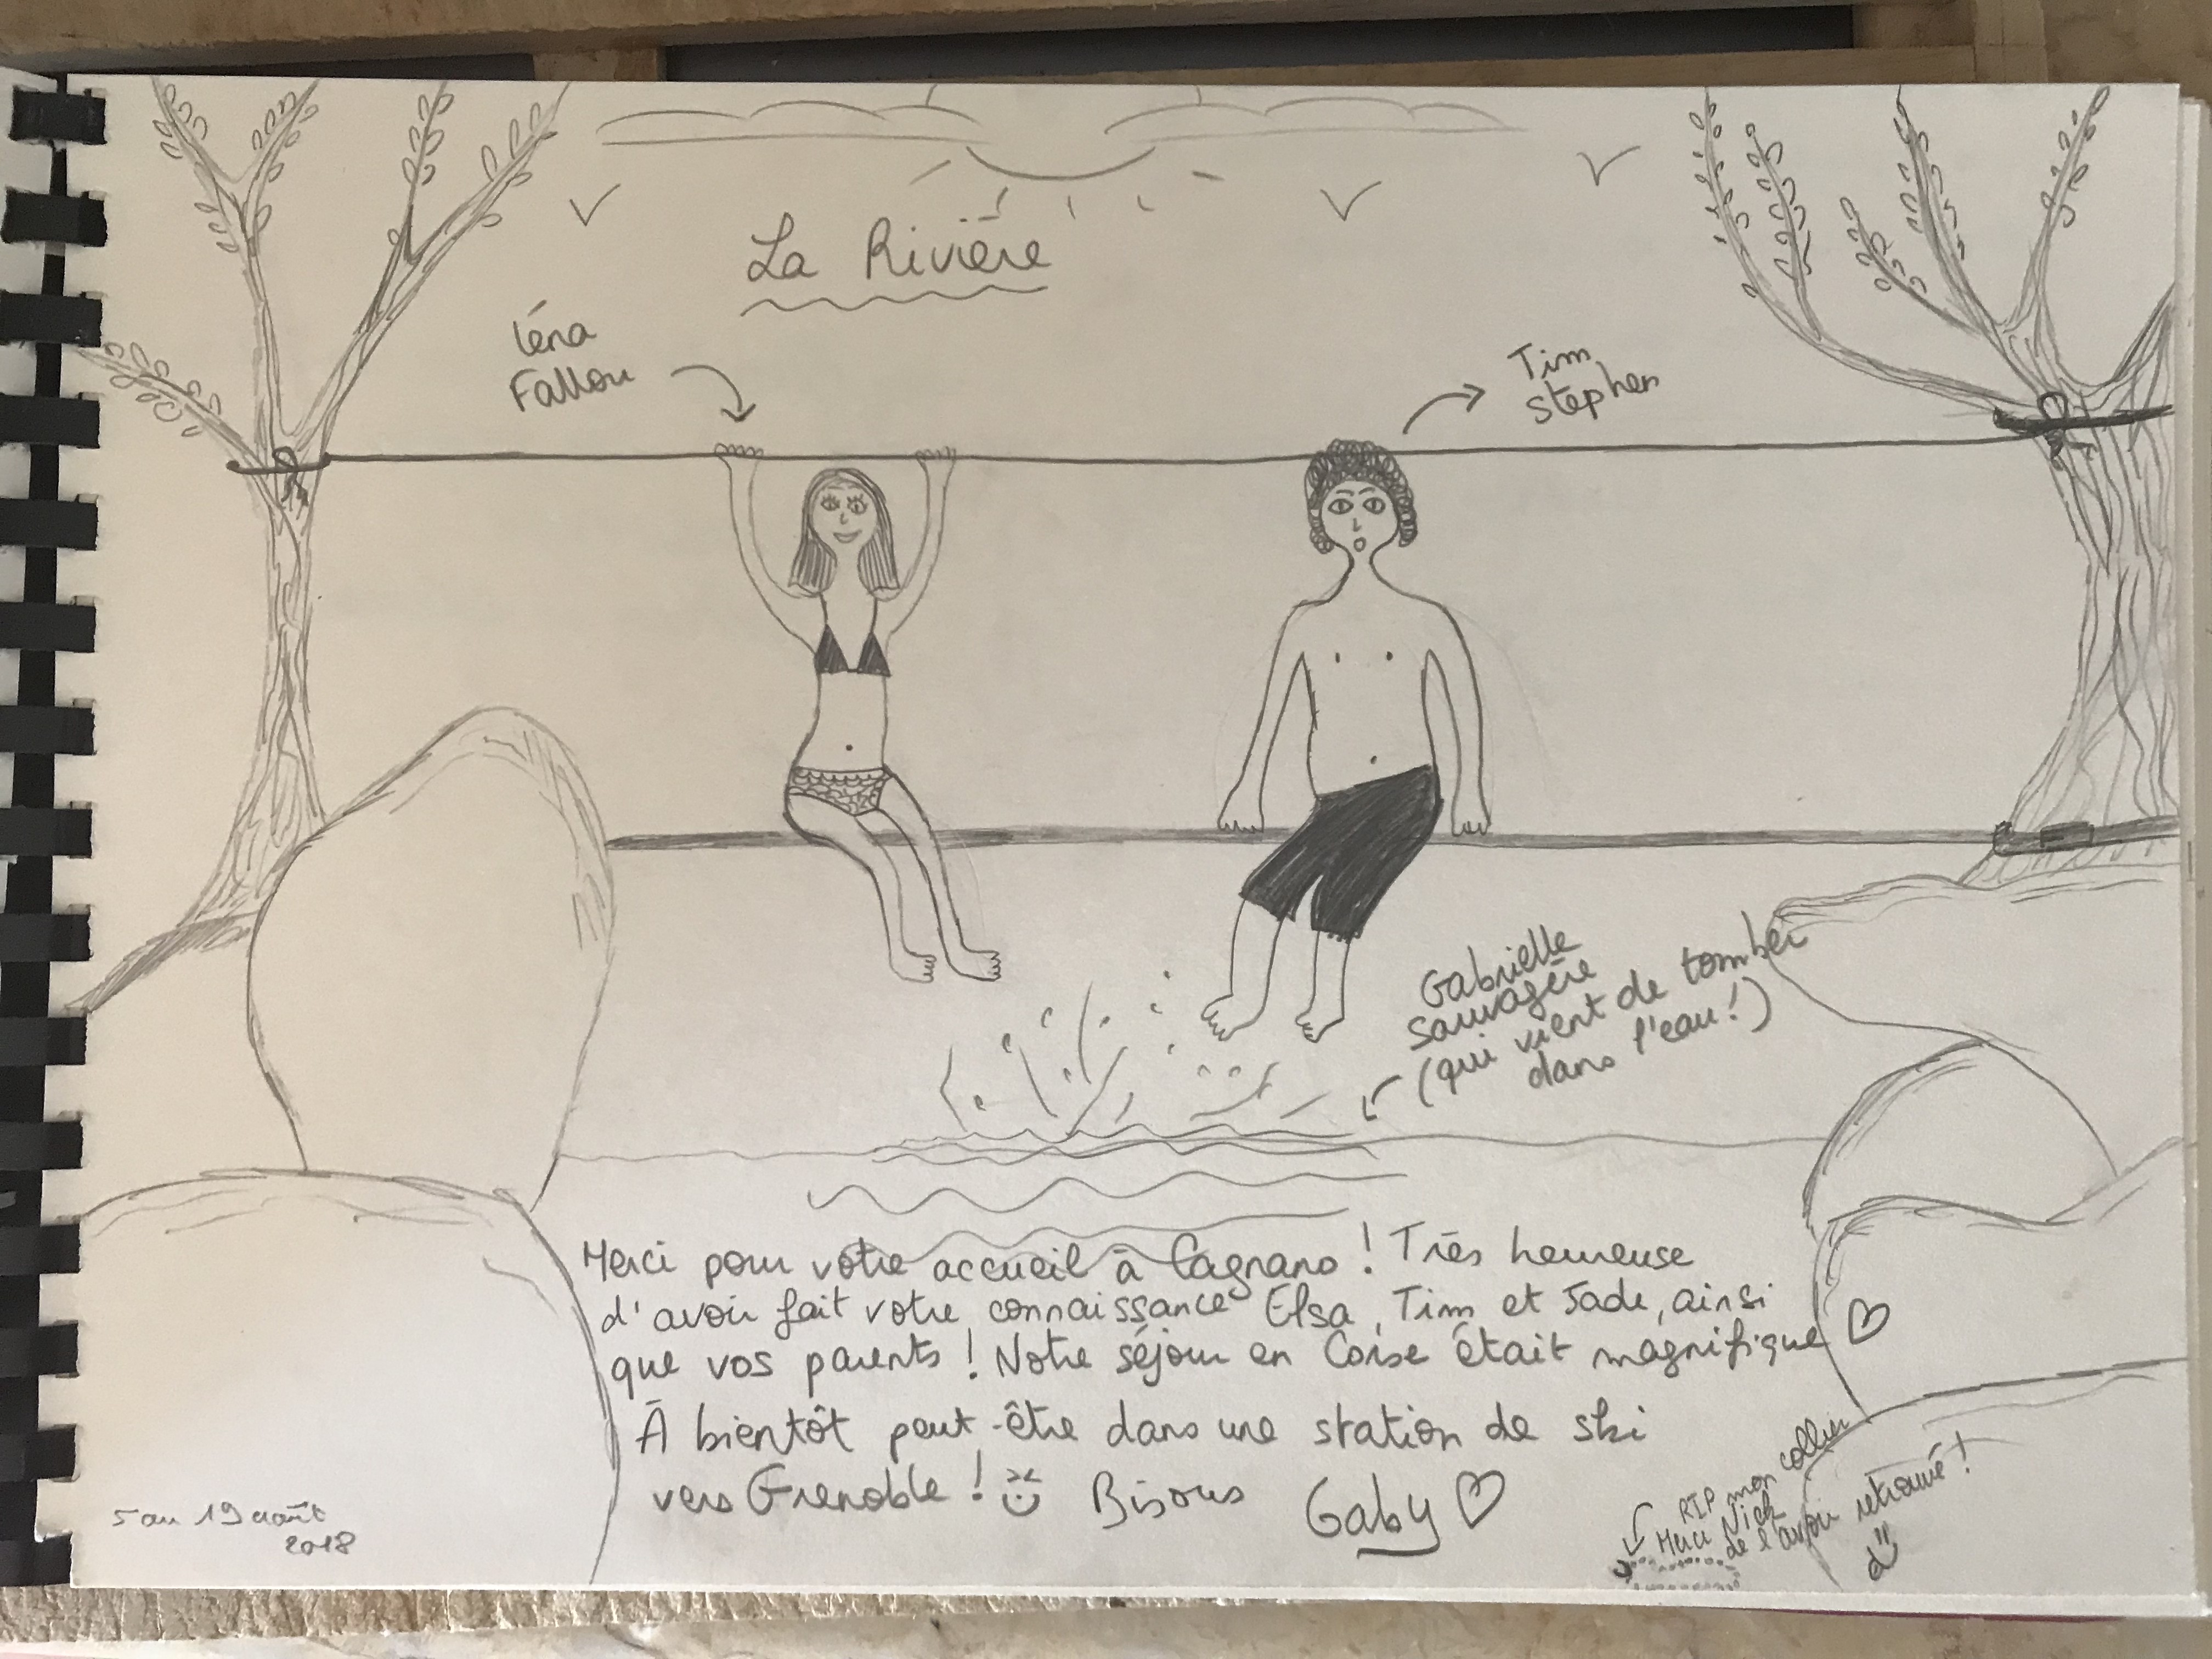 La Rivière
Léna
Fallou
Tim
Stephen
Gabrielle
Sauvagère
(qui vient de tomber
dans l'eau !)
Merci pour votre accueil à Cagnano ! Très heureuse
d'avoir fait votre connaissance Elsa, Tim et Jade, ainsi
que vos parents ! Notre séjour en Corse était magnifique ♡
À bientôt peut-être dans une station de ski
vers Grenoble ! Bisous Gaby ♡
5 au 19 août
2018
RIP mon collier
Merci Nick
de l'avoir retrouvé !